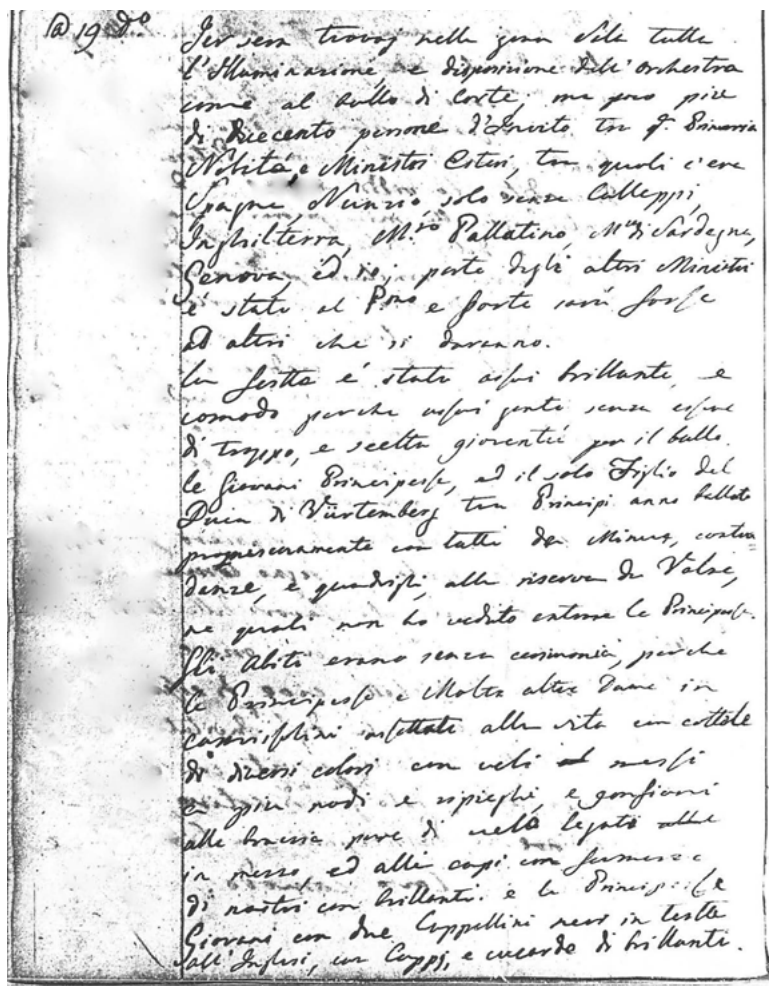 @ 19 do
Jer sera trovaj nella gran Sala tutta
l'Illuminazione, e disposizione dell'orchestra
come al ballo di Corte; ma poco più
di duecento persone d'Invito tra
Nobiltà, e Ministri Esteri, tra quali c'era
Spagna, Nunzio solo senza Caleppi,
Inghilterra, M.ro Pallatino, di Sardegna,
Genova, ed io; parte degli altri Ministri
é stata al P.mo e parte sarà forse
ad altri che si daranno.
La festa é stata assai brillante, e
comoda perche assai gente senza essere
di troppo, e scelta gioventù per il ballo.
le Giovani Principesse, ed il solo Figlio del
Duca di Würtemberg tra Principi anno ballato
promiscuamente con tutti de Minuè, contra
danze, e quadrigli, alla riserva de Valse,
ne quali non ho veduto entrare le Principesse.
Gli Abiti erano senza cerimonia, perche
le Principesse e Molte altre Dame in
assettate alla vita con cottole
di diversi colori con veli messi
a più nodi e ripieghi, e gonfiami
alle braccia pure di velo legati
in mezzo, ed alla capi con
di nastri con brillanti. e le Principesse
Giovani con due Cappellini neri in testa
all'Inglesi, con Cappj, e cocarde di brillanti.